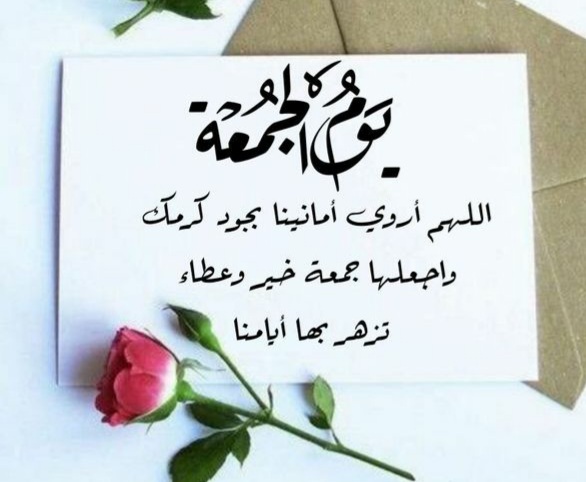 يَومُ الجُمعة
اللهم أروي أمانينا بجود كرمك
واجعلها جمعة خير وعطاء
تزهر بها أيامنا